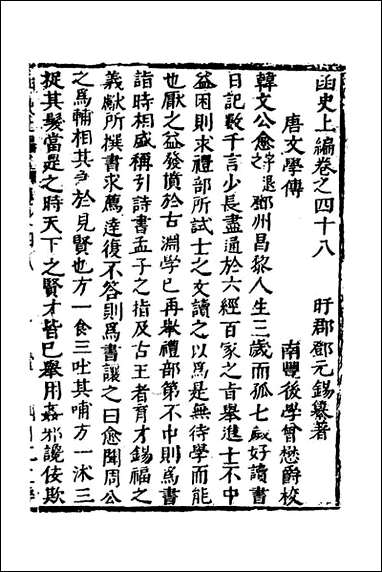 函史上編卷之四十八　旴郡鄧元錫纂著
唐文學傳　南豐後學曾懋爵校
韓文公愈字退之鄧州昌黎人生三歲而孤七歲好讀書
日記數千言少長盡通於六經百家之旨舉進士不中
益困則求禮部所試士之文讀之以爲是無待學而能
也厭之益發憤於古淵學已再舉禮部第不中則爲書
詣時相盛稱引詩書孟子之指及古王者育才錫福之
義獻所撰書求薦達復不答則爲書讓之曰愈聞周公
之爲輔相其急於見賢也方一食三吐其哺方一沐三
捉其髮當是之時天下之賢才皆已舉用姦邪讒佞欺